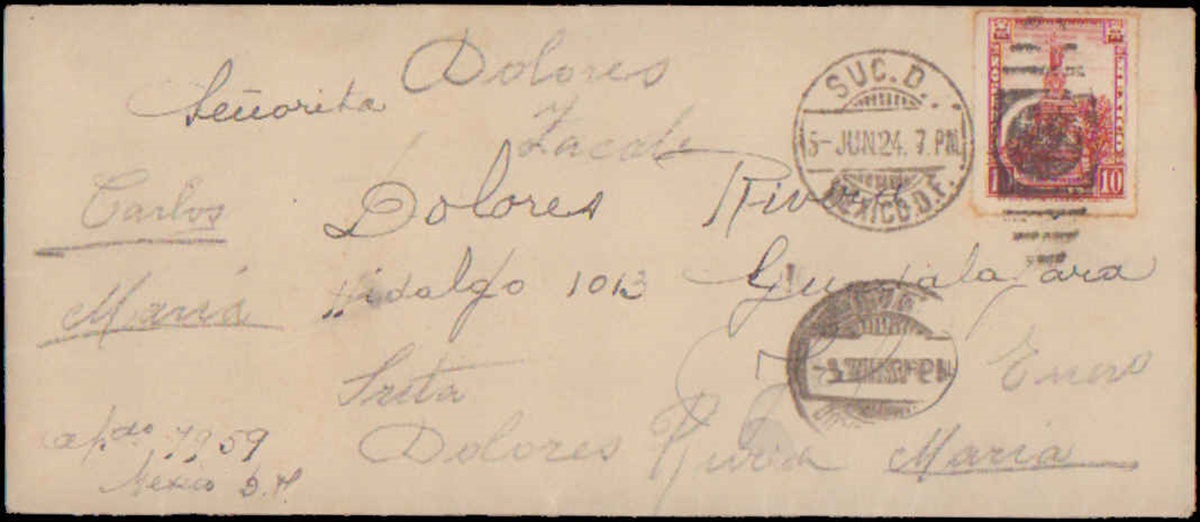 Dolores
Señorita
SUC. D.
5-JUN 24. 7. PM.
MEXICO D.F.
10
Carlos
Dolores Rivera
Hidalgo 1013 Guadalajara
María
Srita
Enero
Dolores Rivera María
Apdo 7959
Mexico D.F.